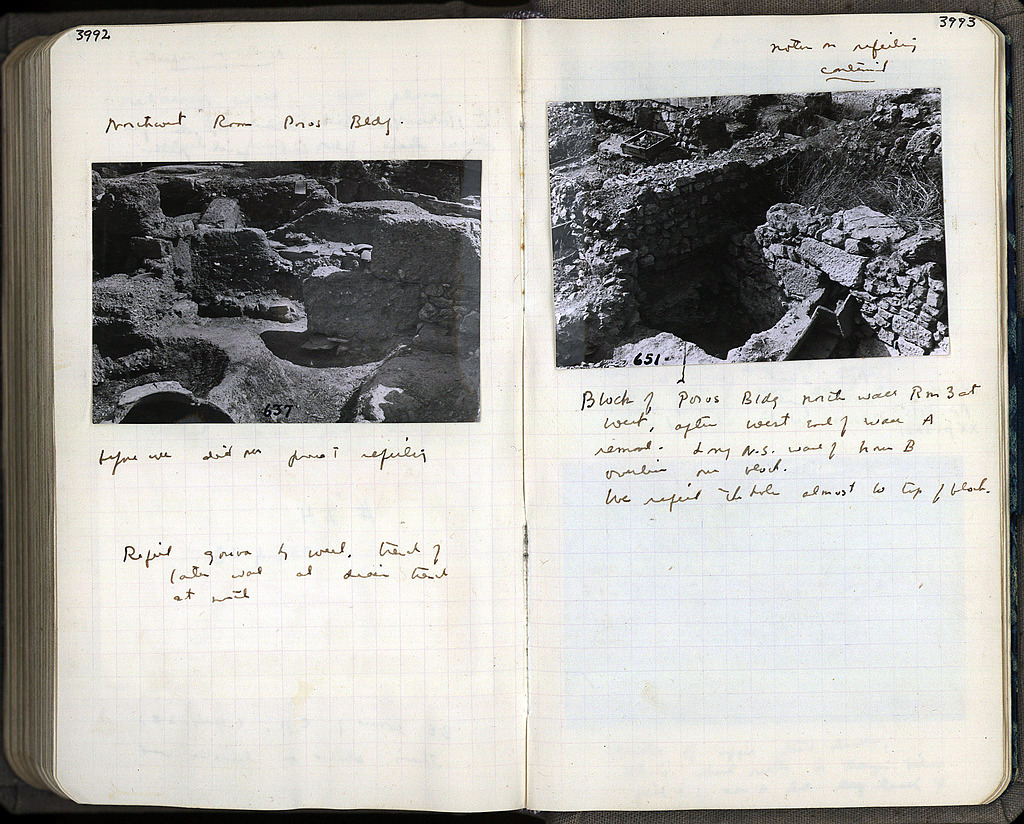 3992
Northwest Room Poros Bldg.
637
before we did our refilling
Refill by west. trench of
later wall at drain trench
at north
3993
notes on refilling
continued
651
Block of Poros Bldg north wall Rm 3 at
west, after west end of wall A
removed. Long N.S. wall of house B
overlies our block.
We refill the hole almost to top of block.